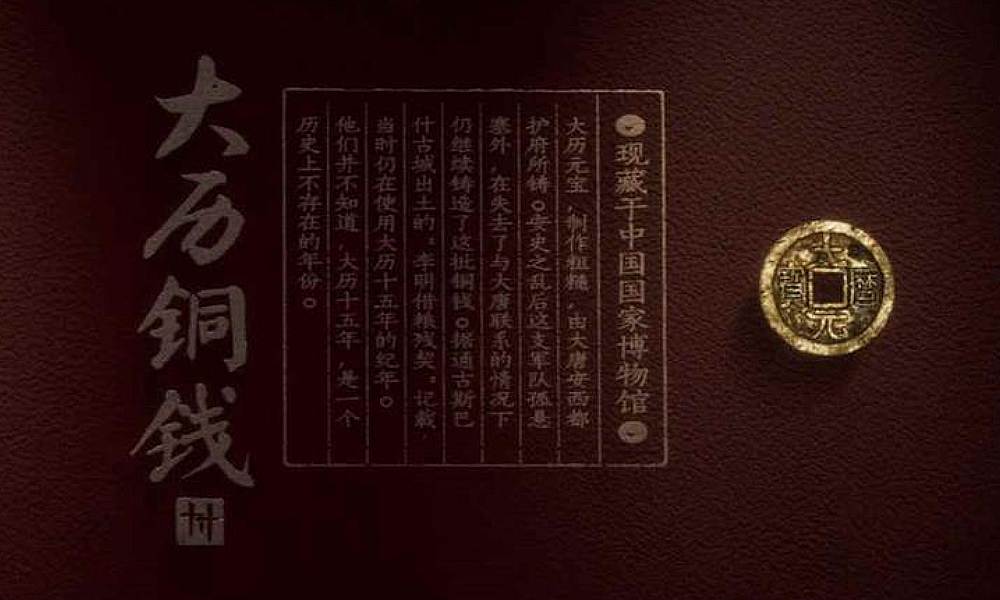 大历铜钱
现藏于中国国家博物馆
大历元宝，制作粗糙，由大唐安西都
护府所铸。安史之乱后这支军队孤悬
塞外，在失去了与大唐联系的情况下
仍继续铸造了这批铜钱。据通古斯巴
什古城出土的“李明借粮残契”记载，
当时仍在使用大历十五年的纪年。
他们并不知道，大历十五年，是一个
历史上不存在的年份。
大曆元寶